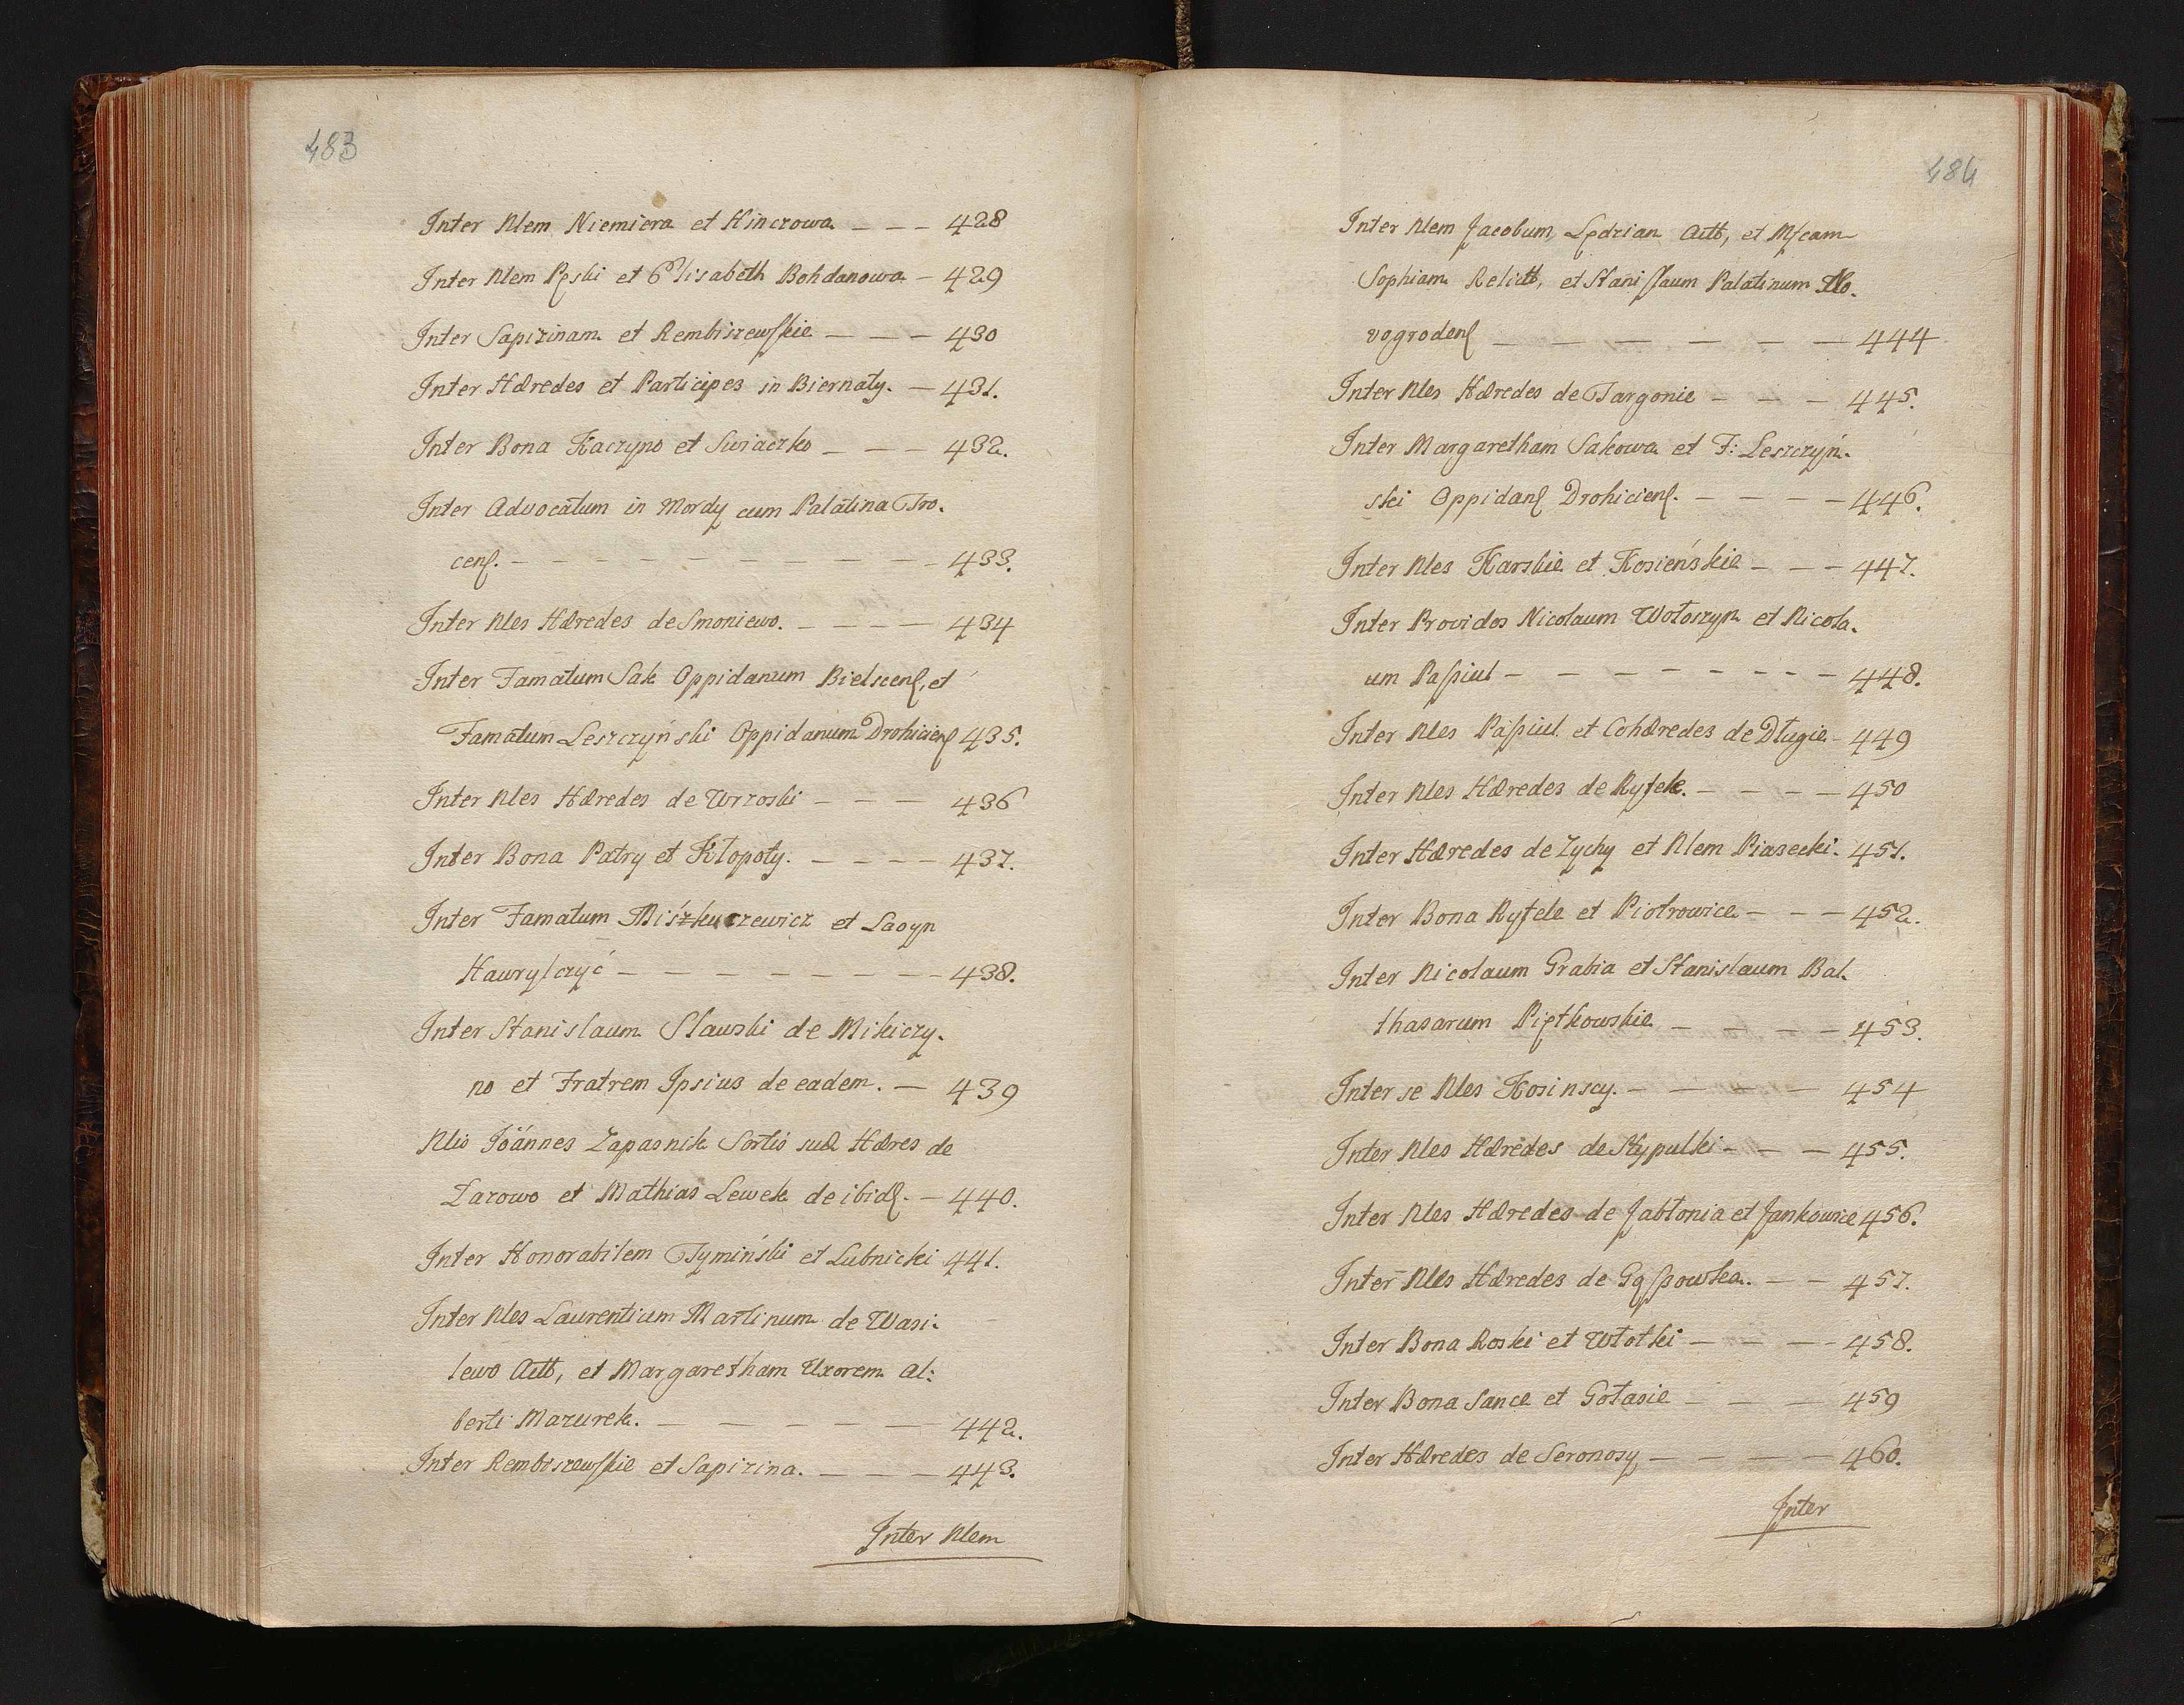 483
Inter Nlem Niemiera et Hinczowa — — — 428
Inter Nlem Pęski et Elisabeth Bohdanowa — 429
Inter Sapizinam et Rembiszewskie — — — 430
Inter Hæredes et Participes in Biernaty. — 431.
Inter Bona Kaczyno et Swiaczko — — — 432.
Inter Advocatum in Mordy cum Palatina Tro.
cens. — — — — — — — — — 433.
Inter Nles Hæredes de Smoniewo. — — — — 434
Inter Famatum Sak Oppidanum Bielscens, et
Famatum Leszczyński Oppidanum Drohiciens 435.
Inter Nles Hæredes de Wrzoski — — — 436
Inter Bona Patry et Kłopoty. — — — — 437.
Inter Famatum Miśzkuczewicz et Laoyn
Hawrylczyć — — — — — — — — 438.
Inter Stanislaum Slawski de Mikiczy.
no et Fratrem Ipsius de eadem. — 439
Nlis Joannes Zapasnik Sortis suæ Hæres de
Zarowo et Mathias Lewek de ibid. — 440.
Inter Honorabilem Tymiński et Lubnicki 441.
Inter Nles Laurentium Martinum de Wasi.
lewo Actt, et Margaretham Uxorem Al:
berti Mazurek. — — — — — 442.
Inter Rembiszewskie et Sapizina. — — — 443.
Inter Nlem
484
Inter Nlem Jacobum Lędzian Actt, et Mscam
Sophiam Relictt, et Stanislaum Palatinum No.
vogrodens — — — — — — — 444
Inter Nles Hæredes de Targonie — — — 445.
Inter Margaretham Sakowa et F: Leszczyń.
ski Oppidans Drohiciens. — — — — 446.
Inter Nles Karskie et Kosieńskie — — — 447.
Inter Providos Nicolaum Wołoszyn et Nicola.
um Passiul — — — — — — — — 448.
Inter Nles Passiul et Cohæredes de Długie — 449
Inter Nles Hæredes de Rytele. — — — — 450
Inter Hæredes de Zychy et Nlem Piasecki. 451.
Inter Bona Rytele et Piotrowice — — — 452.
Inter Nicolaum Grabia et Stanislaum Bal.
thasarum Piętkowskie — — — — 453.
Inter se Nles Kosinscy. — — — — 454
Inter Nles Hæredes de Stypulki — — — 455.
Inter Nles Hæredes de Jabłonia et Jankowice 456.
Inter Nles Hæredes de Gąssowka. — — 457.
Inter Bona Roski et Włotki — — — — 458.
Inter Bona Sance et Gołasie — — — 459
Inter Hæredes de Seronosy — — — — 460.
Inter